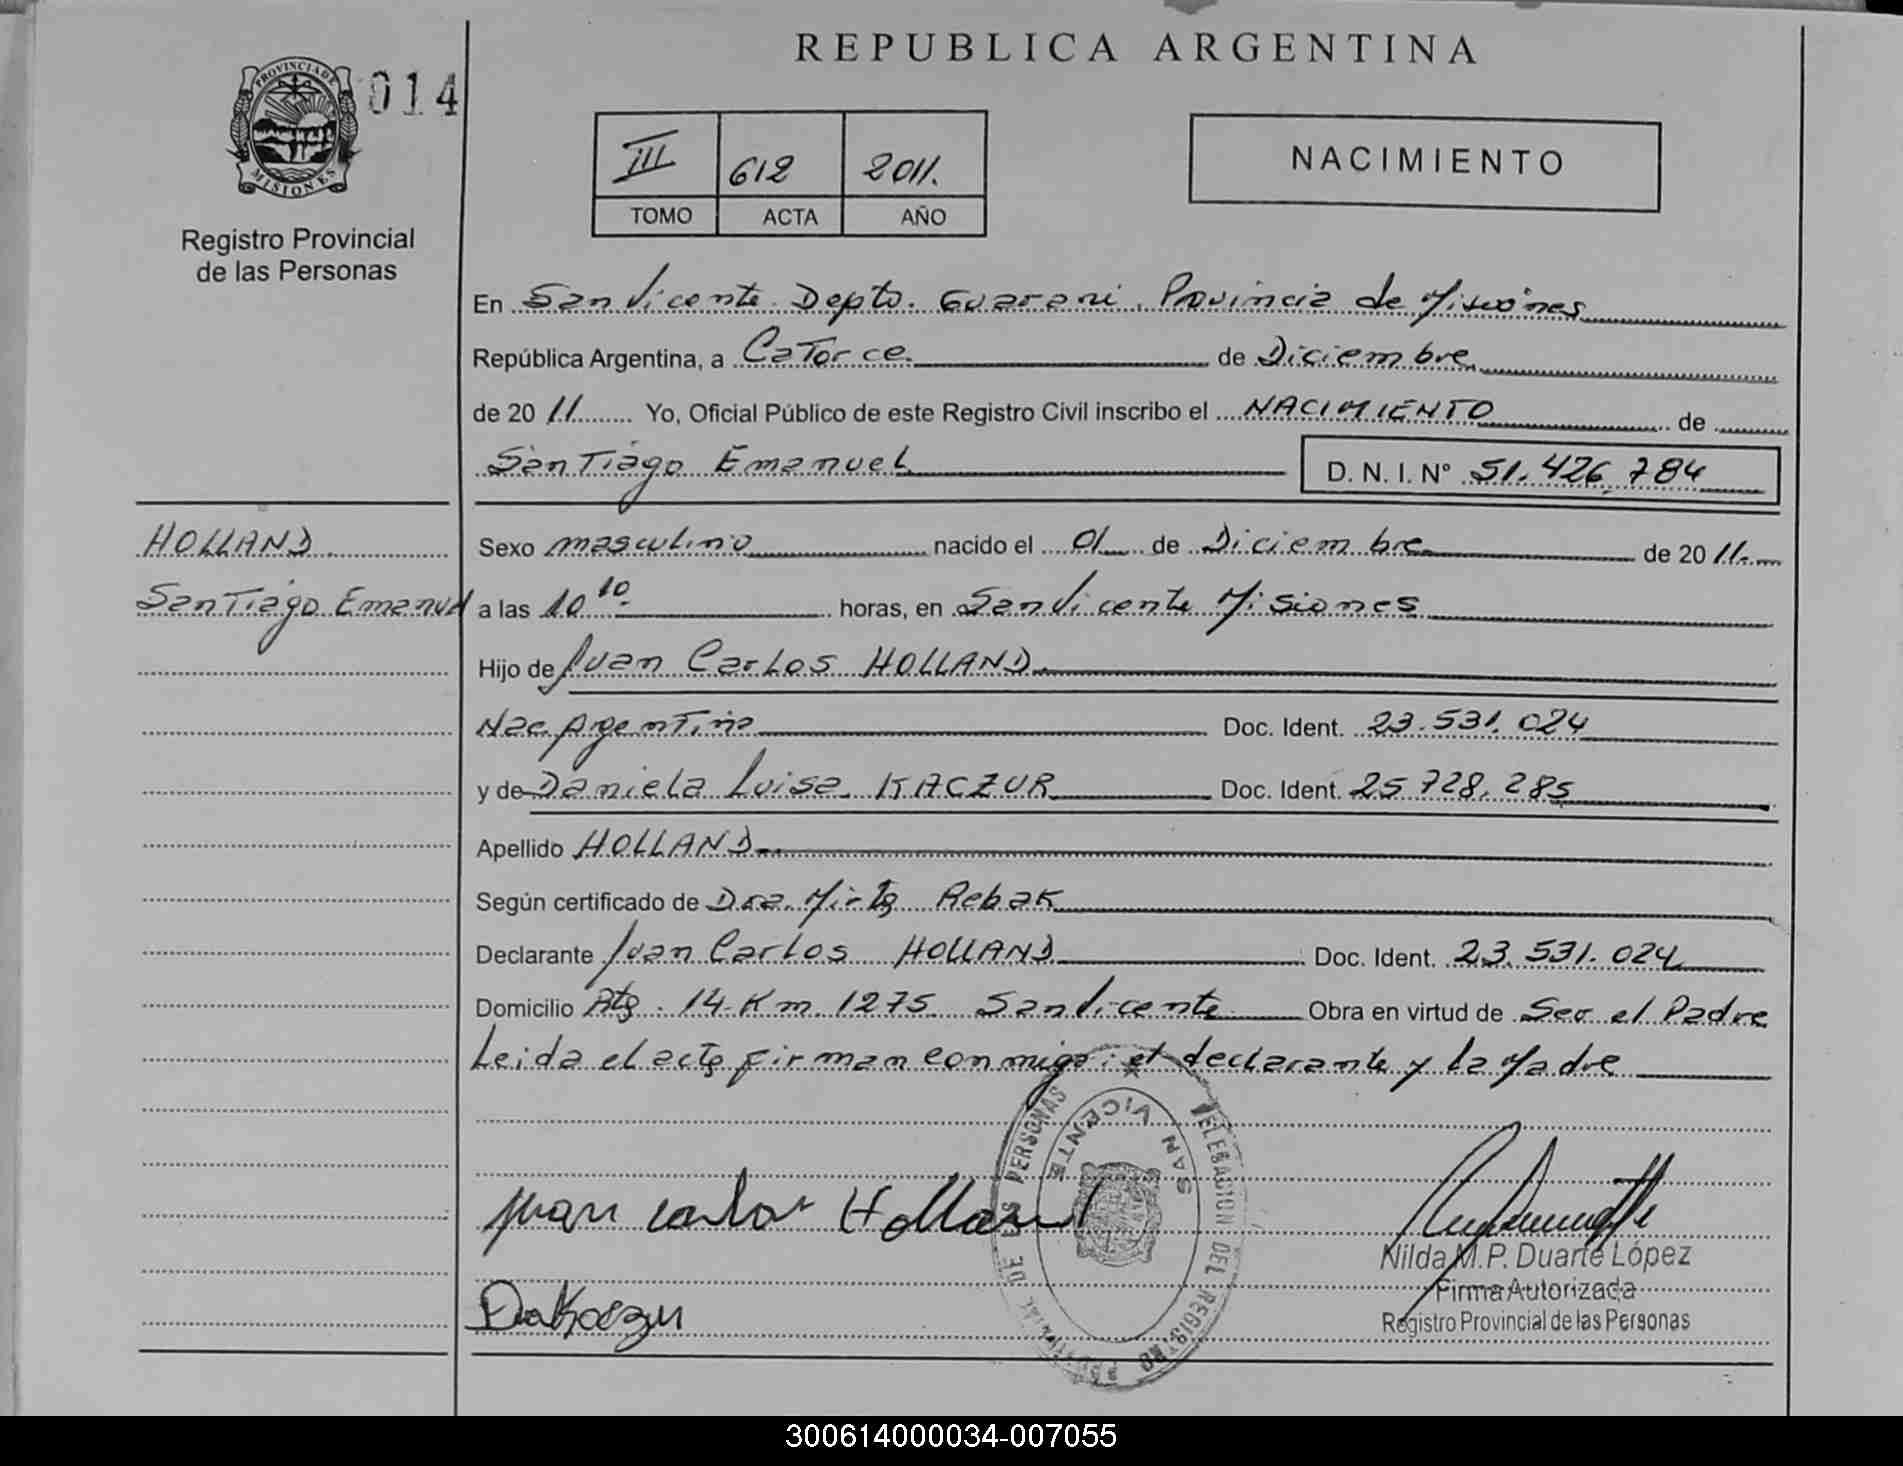 REPUBLICA ARGENTINA
PROVINCIA DE
MISIONES
014
Registro Provincial
de las Personas
III 612 2011.
TOMO ACTA AÑO
NACIMIENTO
En San Vicente Depto. Guarani. Provincia de Misiones
República Argentina, a Catorce de Diciembre
de 2011 Yo, Oficial Público de este Registro Civil inscribo el NACIMIENTO de
Santiago Emanuel D. N. I. N° 51.426.784
HOLLAND
Santiago Emanuel
Sexo masculino nacido el 01 de Diciembre de 2011.
a las 10 10 horas, en San Vicente Misiones
Hijo de Juan Carlos HOLLAND
Nac Argentina Doc. Ident. 23.531.024
y de Daniela Luisa KACZUR Doc. Ident. 25.728.285
Apellido HOLLAND
Según certificado de Dra. Mirta Rebak
Declarante Juan Carlos HOLLAND Doc. Ident. 23.531.024
Domicilio Rta. 14 Km 1275 San Vicente Obra en virtud de Ser el Padre
Leida el acta firman conmigo: el declarante y la Madre
DELEGACION DEL REGISTRO PROVINCIAL DE LAS PERSONAS
SAN VICENTE
Juan Carlos Holland
Nilda M.P. Duarte López
Firma Autorizada
Registro Provincial de las Personas
300614000034-007055